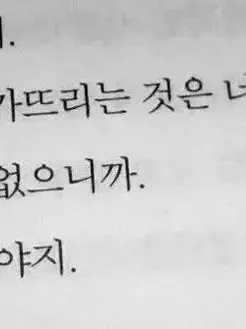 .
가뜨리는 것은
없으니까.
야지.